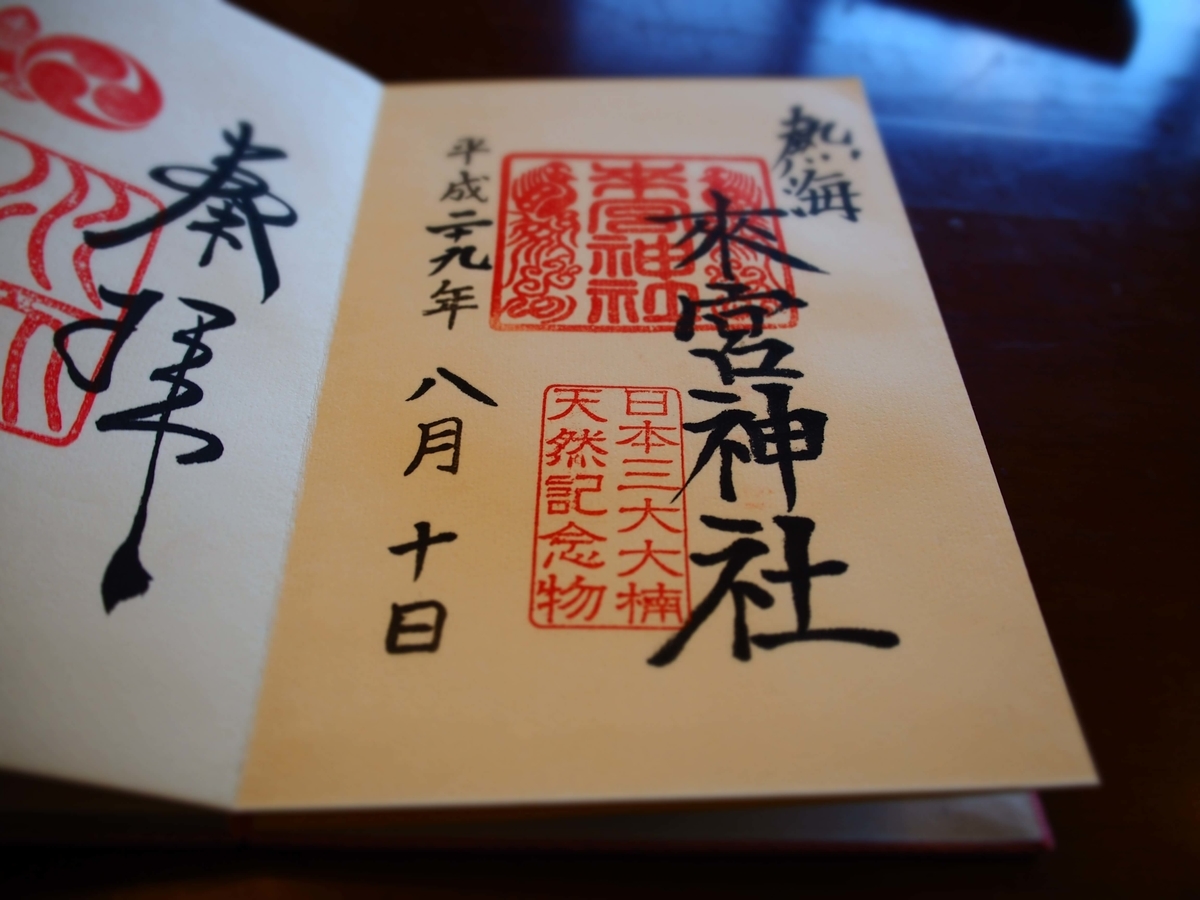 熱海
來宮神社
來宮神社
日本三大大楠
天然記念物
平成二十九年 八月 十日
奉拝